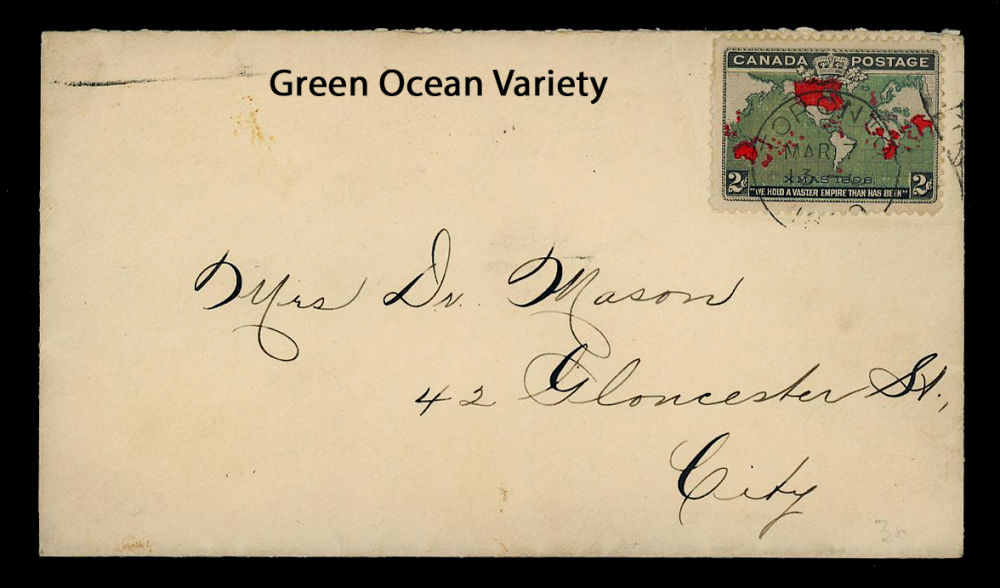 Green Ocean Variety
CANADA POSTAGE
TORONTO
MAR
XMAS 1898
2¢ 2¢
"WE HOLD A VASTER EMPIRE THAN HAS BEEN"
Mrs Dr. Mason
42 Gloucester St,
City
30